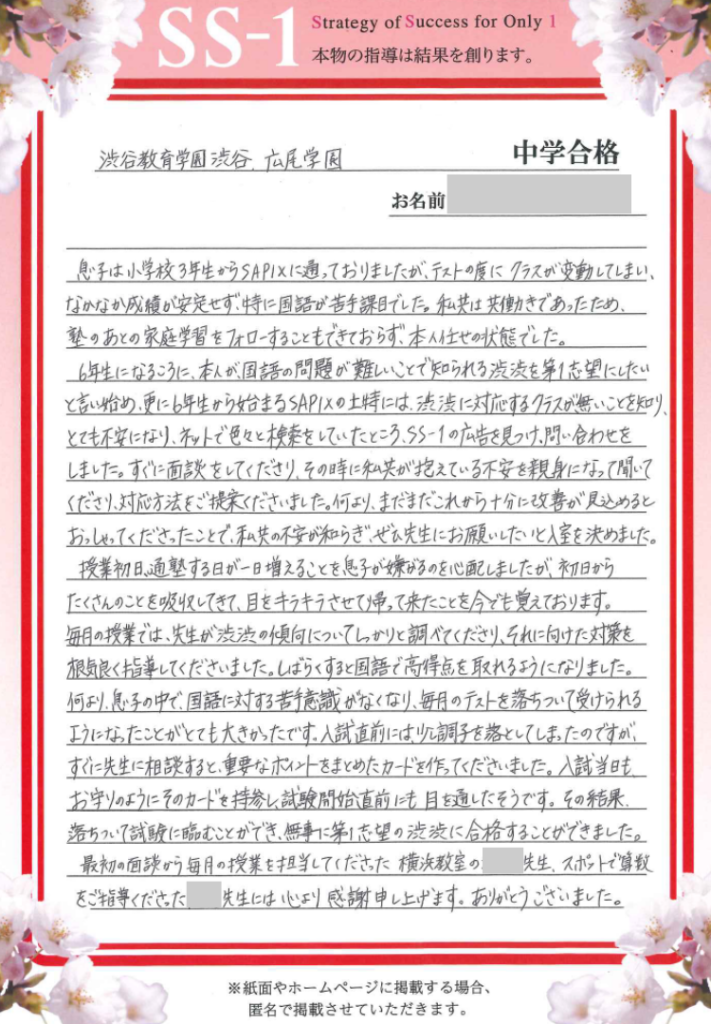 SS-1
Strategy of Success for Only 1
本物の指導は結果を創ります。
渋谷教育学園渋谷、広尾学園
中学合格
お名前
息子は小学校3年生からSAPIXに通っておりましたが、テストの度にクラスが変動してしまい、
なかなか成績が安定せず、特に国語が苦手課目でした。私共は共働きであったため、
塾のあとの家庭学習をフォローすることもできておらず、本人任せの状態でした。
6年生になるころに、本人が国語の問題が難しいことで知られる渋渋を第1志望にしたい
と言い始め、更に6年生から始まるSAPIXの土特には、渋渋に対応するクラスが無いことを知り、
とても不安になり、ネットで色々と検索をしていたところ、SS-1の広告を見つけ、問い合わせを
しました。すぐに面談をしてくださり、その時に私共が抱えている不安を親身になって聞いて
くださり、対応方法をご提案くださいました。何より、まだまだこれから十分に改善が見込めると
おっしゃってくださったことで、私共の不安が和らぎ、ぜひ先生にお願いしたいと入室を決めました。
授業初日、通塾する日が一日増えることを息子が嫌がるのを心配しましたが、初日から
たくさんのことを吸収してきて、目をキラキラさせて帰って来たことを今でも覚えております。
毎月の授業では、先生が渋渋の傾向についてしっかりと調べてくださり、それに向けた対策を
根気良く指導してくださいました。しばらくすると国語で高得点を取れるようになりました。
何より、息子の中で、国語に対する苦手意識がなくなり、毎月のテストを落ちついて受けられる
ようになったことがとても大きかったです。入試直前には、少し調子を落としてしまったのですが、
すぐに先生に相談すると、重要なポイントをまとめたカードを作ってくださいました。入試当日も、
お守りのようにそのカードを持参し、試験開始直前にも目を通したそうです。その結果、
落ちついて試験に臨むことができ、無事に第1志望の渋渋に合格することができました。
最初の面談から毎月の授業を担当してくださった横浜教室の先生、スポットで算数
をご指導くださった先生には心より感謝申し上げます。ありがとうございました。
※紙面やホームページに掲載する場合、
匿名で掲載させていただきます。